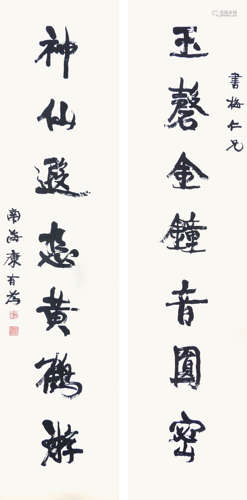 書梅仁兄
玉磬金鐘音圓密
神仙遐
黃鶴
南海康有為